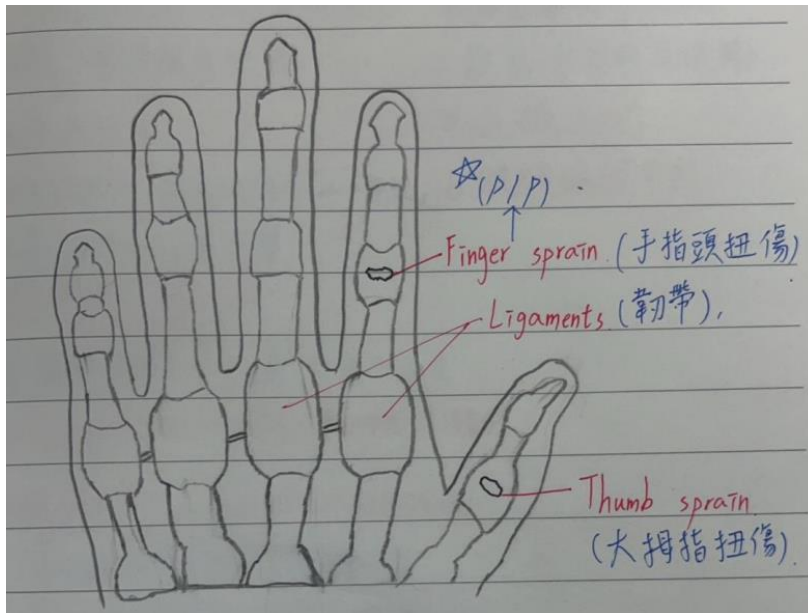 ☆(P/P).
Finger sprain (手指頭扭傷)
Ligaments (韌帶),
Thumb sprain
(大拇指扭傷)